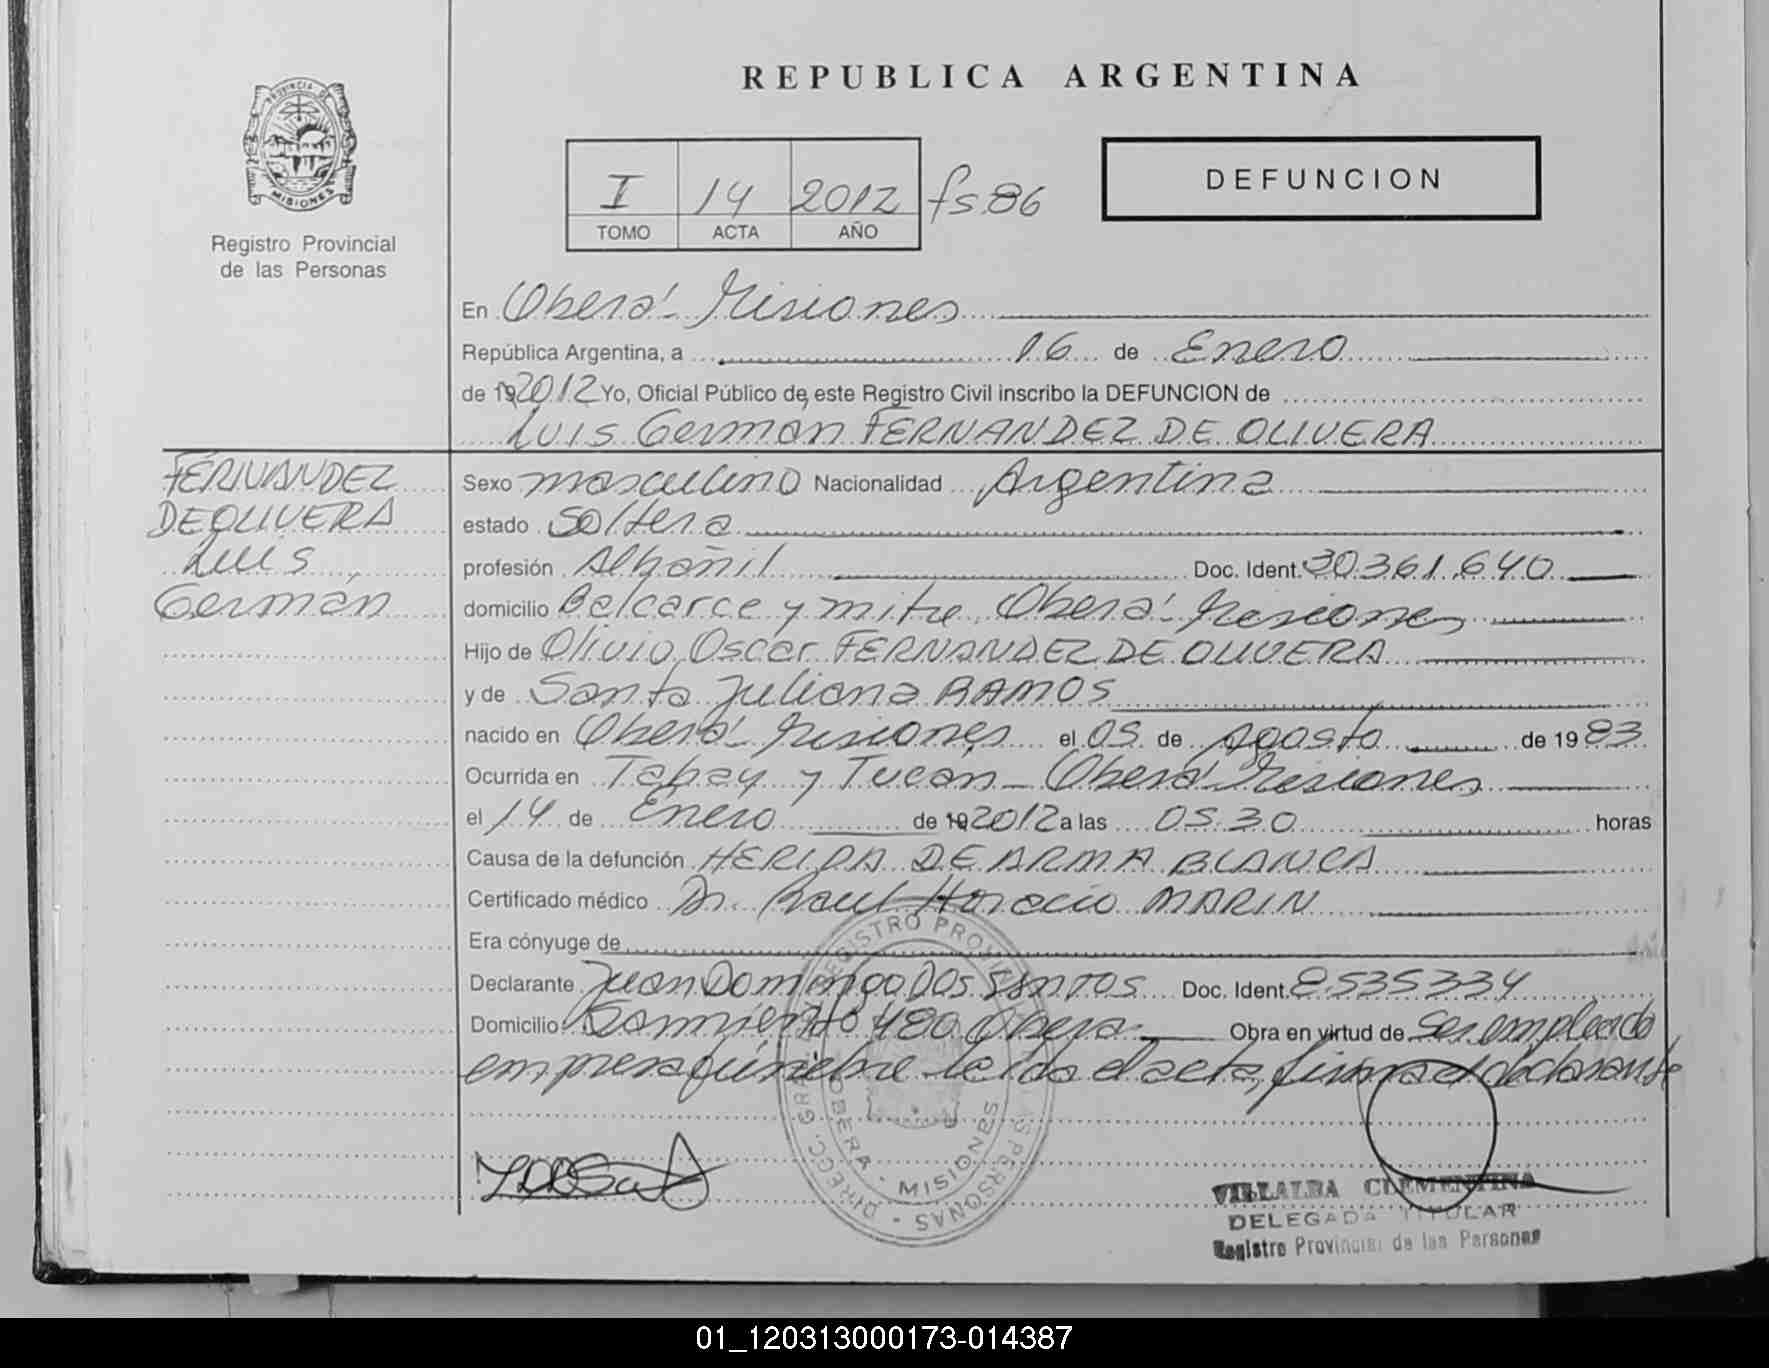 REPUBLICA ARGENTINA
PROVINCIA DE
MISIONES
Registro Provincial
de las Personas
I 14 2012 fs 86
TOMO ACTA AÑO
DEFUNCION
En Oberá - Misiones
República Argentina, a 16 de Enero
de 19 2012 Yo, Oficial Público de este Registro Civil inscribo la DEFUNCION de
Luis Germán FERNANDEZ DE OLIVERA
FERNANDEZ
DE OLIVERA
Luis
Germán
Sexo masculino Nacionalidad Argentina
estado Soltera
profesión Albañil Doc. Ident. 30.361.640
domicilio Balcarce y mitre, Oberá - Misiones
Hijo de Olivio Oscar FERNANDEZ DE OLIVERA
y de Santa Juliana RAMOS
nacido en Oberá - Misiones el 05 de Agosto de 1983
Ocurrida en Tabay y Tucan - Oberá Misiones
el 14 de Enero de 19 2012 a las 05.30 horas
Causa de la defunción HERIDA DE ARMA BLANCA
Certificado médico Dr. Raul Horacio MARIN
Era cónyuge de
Declarante Juan Domingo Dos Santos Doc. Ident. 8535334
Domicilio Sarmiento 480 Obera Obra en virtud de ser empleado
empresa fúnebre leida el acta, firma el declarante
OBERA - MISIONES
VILLALBA CLEMENTINA
DELEGADA TITULAR
Registro Provincial de las Personas
01_120313000173-014387